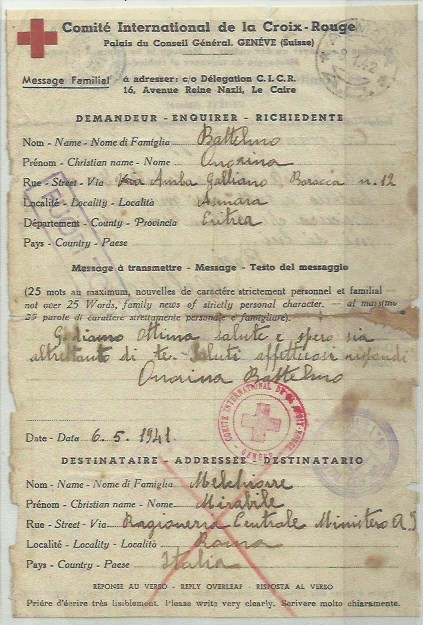 Comité International de la Croix-Rouge
Palais du Conseil Général. GENÈVE (Suisse)
Message Familial - à adresser: c/o Délégation C.I.C.R.
16, Avenue Reine Nazli, Le Caire
DEMANDEUR - ENQUIRER - RICHIEDENTE
Nom - Name - Nome di Famiglia Battelino
Prénom - Christian name - Nome Onorina
Rue - Street - Via Via Amba Galliano Baracca n. 12
Localité - Locality - Località Asmara
Département - County - Provincia Eritrea
Pays - Country - Paese
Message à transmettre - Message - Testo del messaggio
(25 mots au maximum, nouvelles de caractère strictement personnel et familial -
not over 25 Words, family news of strictly personal character. - al massimo
25 parole di carattere strettamente personale e famigliare).
Godiamo Ottima salute e spero sia
altrettanto di te. Saluti affettuosi rispondi
Onorina Battelino
COMITÉ INTERNATIONAL DE LA CROIX-ROUGE
GENÈVE
Date - Data 6.5.1941
DESTINATAIRE - ADDRESSEE DESTINATARIO
Nom - Name - Nome di Famiglia Melchiorre
Prénom - Christian name - Nome Mirabile
Rue - Street - Via Ragioneria Centrale Ministero A.I
Localité - Locality - Località Roma
Pays - Country - Paese Italia
RÉPONSE AU VERSO - REPLY OVERLEAF - RISPOSTA AL VERSO
Prière d'écrire très lisiblement. Please write very clearly. Scrivere molto chiaramente.